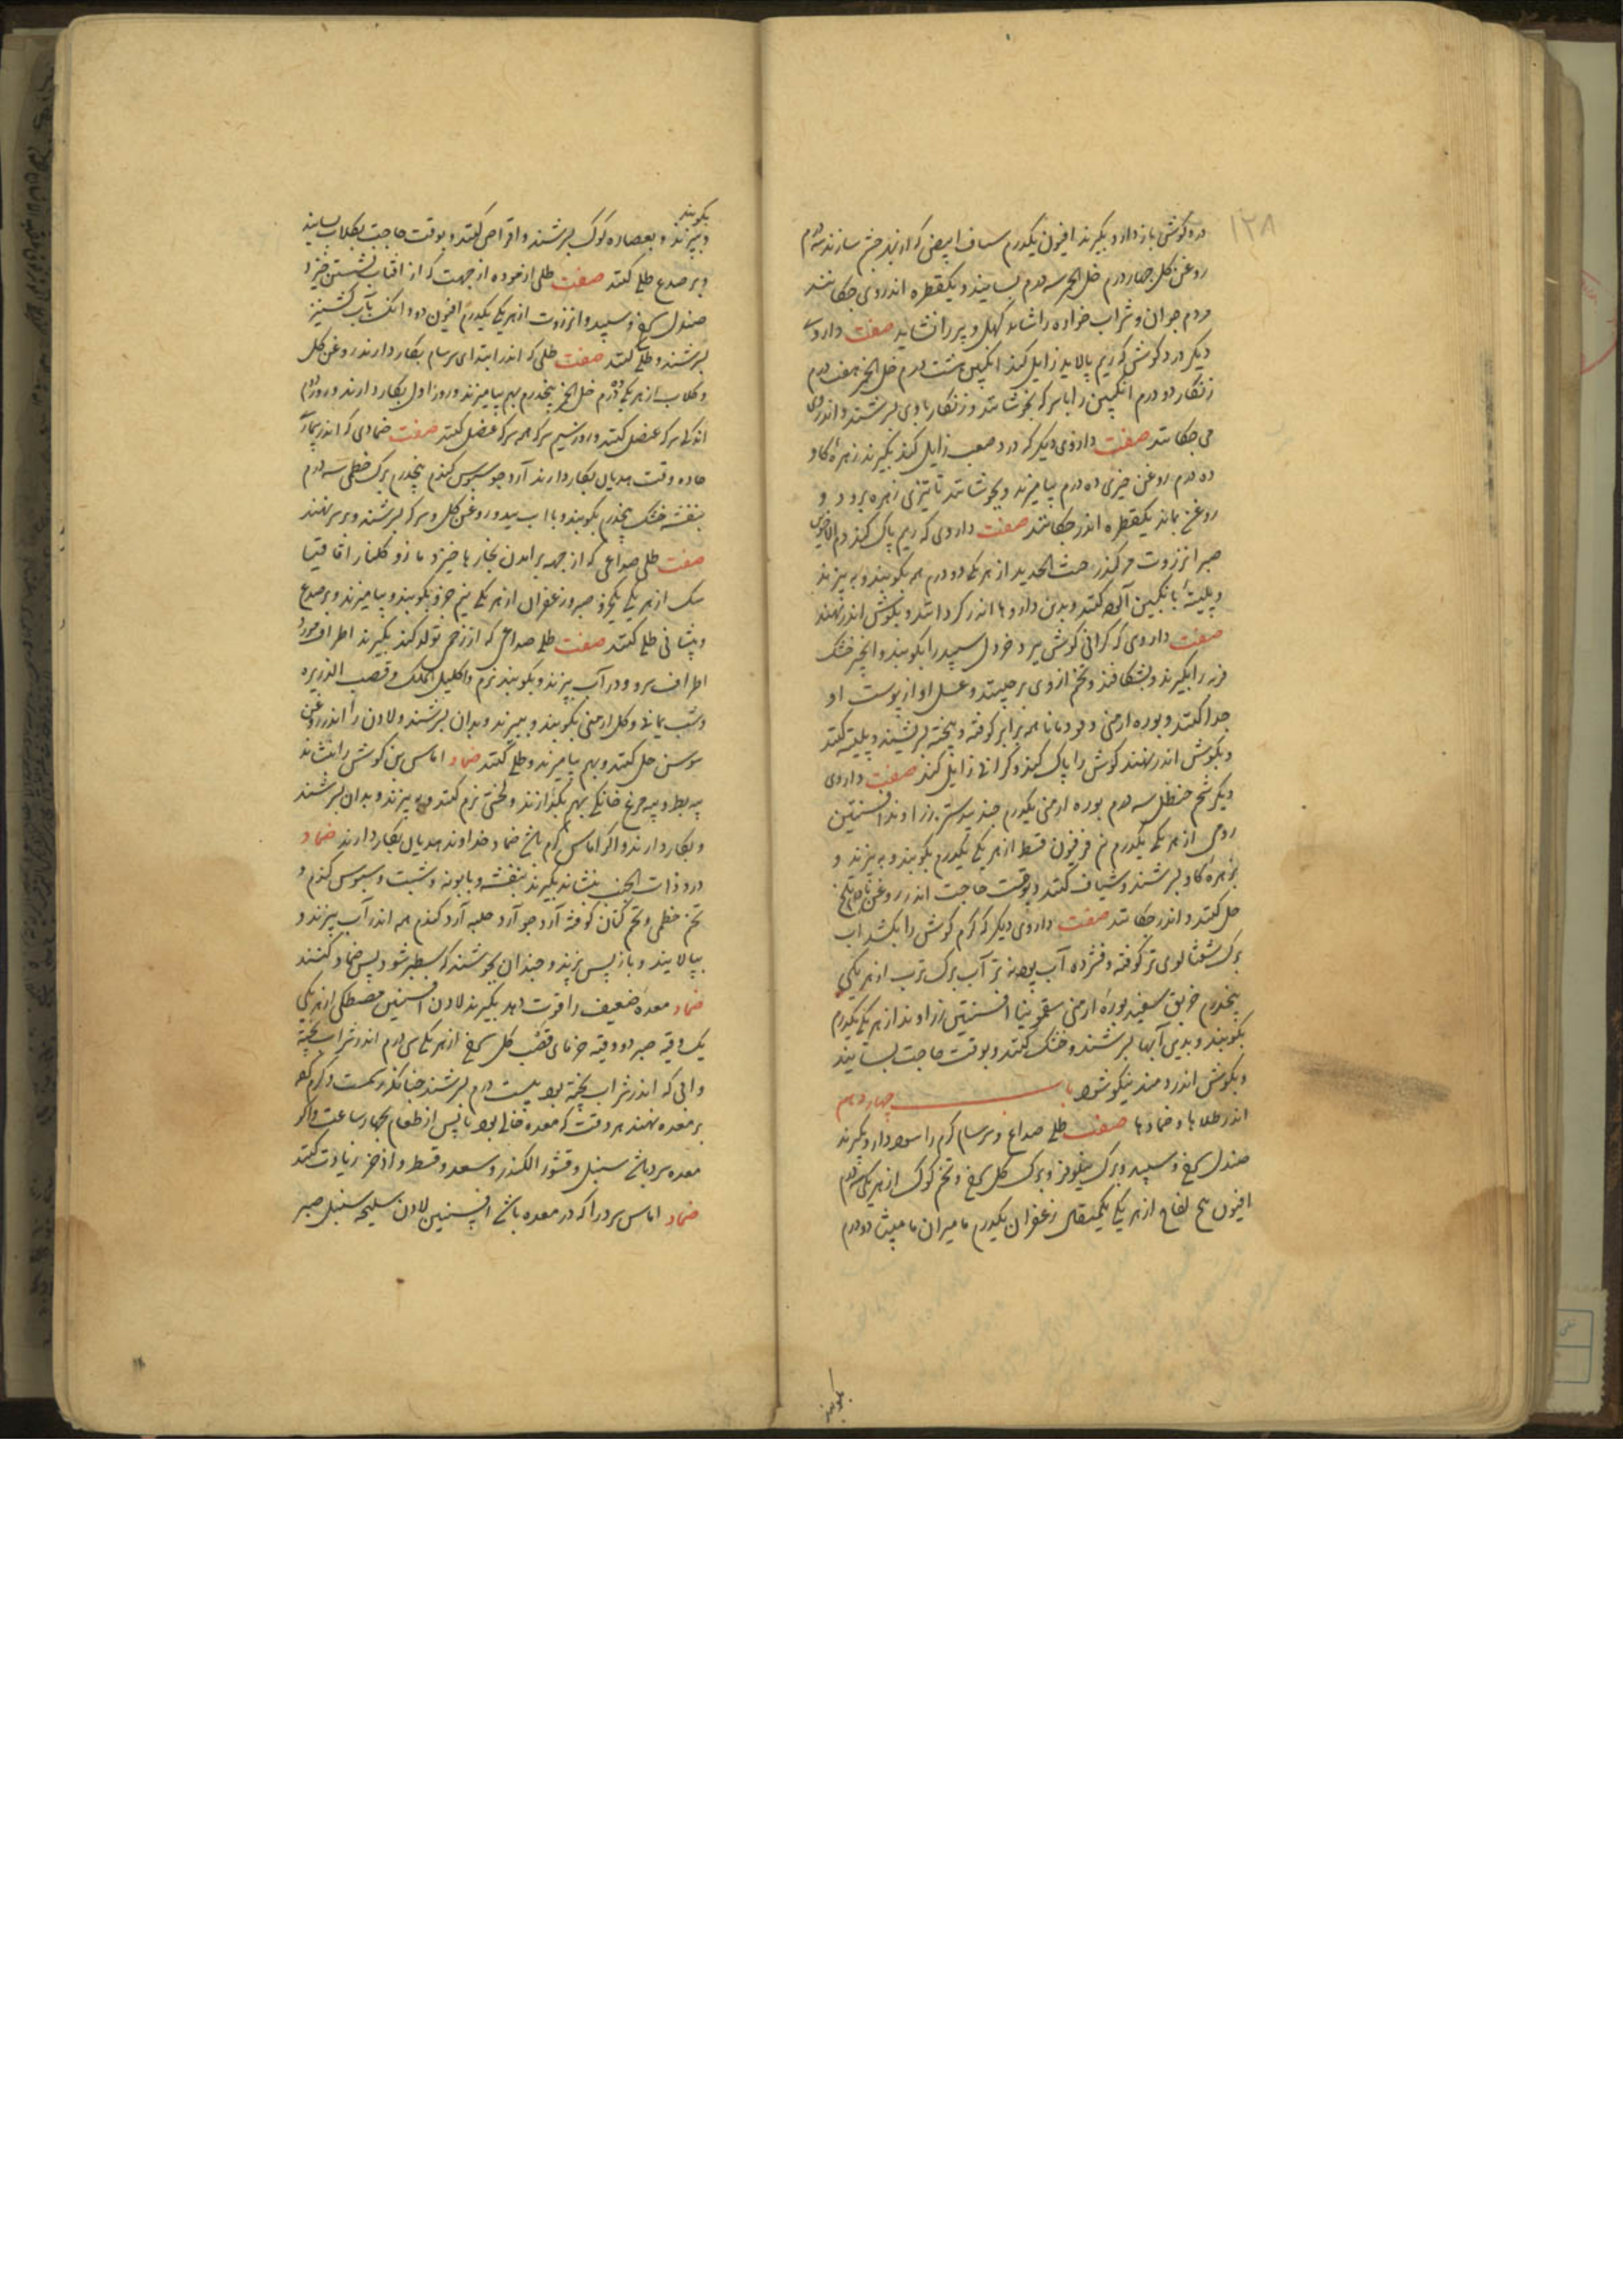 ۱۲۸
درد گوش باز دارد بگیرند افیون یکدرم شیاف ابیض که از بهر چشم سازند سه درم
روغن گل چهار درم خل الخمر سه درم بسایند و یکقطره اندر وی چکانند
مردم جوان و شراب خواره را شاید کهل و پیر را نشاید صفت داروی
دیگر درد گوش که ریم پالاید زایل کند انگبین هشت درم خل الخمر هفت درم
زنگار دو درم انگبین را با سرکه بجوشانند و زنگار با وی بسرشند و اندر وی
می چکانند صفت داروی دیگر که درد صعب زایل کند بگیرند زهره گاو
ده درم روغن خیری ده درم بیامیزند و بجوشانند تا تیزی زهره برود و
روغن بماند یکقطره اندر چکانند صفت داروی که ریم پاک کند دم الاخوین
صبر انزروت مر کندر خبث الحدید از هر یکی دو درم همه بکوبند و ببیزند
و پلیته بانگبین آلوده کنند و بدین داروها اندر گردانند و بگوش اندر نهند
صفت داروی که گرانی گوش ببرد خردل سپید را بکوبند و انجیر خشک
فربه را بگیرند و بشکافند و تخم از وی برچینند و عسل او از پوست او
جدا کنند و بوره ارمنی و قردمانا همه برابر کوفته و بیخته بسرشند و پلیته کنند
و بگوش اندر نهند گوش را پاک کند و گرانی زایل کند صفت داروی
دیگر شحم حنظل سه درم بوره ارمنی یکدرم جندبیدستر زراوند افسنتین
رومی از هر یکی یکدرم نیم فرفیون قسط از هر یکی یکدرم بکوبند و ببیزند و
بزهره گاو بسرشند و شیاف کنند و بوقت حاجت اندر روغن بادام تلخ
حل کنند و اندر چکانند صفت داروی دیگر که کرم گوش را بکشد آب
برگ شفتالوی تر کوفته و فشرده آب پودنه تر آب برگ ترب از هر یکی
پنجدرم خربق سفید بوره ارمنی سقمونیا افسنتین زراوند از هر یکی یکدرم
بکوبند و بدین آبها بسرشند و خشک کنند و بوقت حاجت بسایند
و بگوش اندر دمند نیکو شود باب چهاردهم
اندر طلاها و ضمادها صفت طلی صداع و سرسام گرم را سود دارد بگیرند
صندل سرخ و سپید و برگ نیلوفر و برگ گل سرخ و تخم کوک از هر یکی سه درم
افیون بیخ لفاح از هر یکی یکمثقال زعفران یکدرم مامیران مامیثا دو درم
بکوبند
بکوبند
و ببیزند و بعصاره کوک بسرشند و اقراص کنند و بوقت حاجت بگلاب بسایند
و بر صدغ طلی کنند صفت طلی آزموده از جهت که از آفتاب نشستن خیزد
صندل سرخ و سپید و انزروت از هر یکی یکدرم افیون دو دانگ بآب کشنیز
بسرشند و طلی کنند صفت طلی که اندر ابتدای سرسام بکار دارند روغن گل
و گلاب از هر یکی ده درم خل الخمر پنجدرم بهم بیامیزند و روز اول بکار دارند و روز دوم
اندکی سرکه عنصل کنند و روز سیم سرکه همه سرکه عنصل کنند صفت ضمادی که اندر بیماری
حاده وقت هذیان بکار دارند آرد جو سبوس گندم پنجدرم برگ خطمی سه درم
بنفشه خشک پنجدرم بکوبند و با آب بید و روغن گل و سرکه بسرشند و بر سر نهند
صفت طلی صداعی که از جهه برآمدن بخارها خیزد مازو گلنار اقاقیا
سک از هر یکی یکجزو صبر و زعفران از هر یکی نیم جزو بکوبند و بیامیزند و بر صدغ
و پیشانی طلی کنند صفت طلی صداع که از زخم تولد کند بگیرند اطراف مورد
اطراف سرو و در آب بپزند و بکوبند نرم و اکلیل الملک و قصب الذریره
و شب یمانی و گل ارمنی بکوبند و ببیزند و بدان بسرشند و لادن را اندر روغن
سوسن حل کنند و بهم بیامیزند و طلی کنند ضماد اماس بن گوش را بنشاند
پیه بط و پیه مرغ خانگی بهم بگدازند و لختی نرم کنند و ببیزند و بدان بسرشند
و بکار دارند و اگر اماس گرم باشد ضماد خداوند هذیان بکار دارند ضماد
درد ذات الجنب بنشاند بگیرند بنفشه و بابونه و شبت و سبوس گندم و
تخم خطمی و تخم کتان کوفته آرد جو آرد حلبه آرد گندم همه اندر آب بپزند و
بپالایند و باز پس بپزند و چندان بجوشند که سطبر شود پس ضماد کنند
ضماد معده ضعیف را قوت دهد بگیرند لادن افسنتین مصطکی از هر یکی
یک وقیه صبر دو وقیه خرمای قسب گل سرخ از هر یکی سی درم اندر شراب پخته
و آنی که اندر شراب پخته بود بیست درم بسرشند چنانکه رسمست و گرم کرده
بر معده نهند هر وقت که معده خالی بود یا پس از طعام بچهار ساعت و اگر
معده سرد باشد سنبل و قشور الکندر و سعد و قسط و اذخر زیادت کنند
ضماد اماس سرد را که در معده باشد افسنتین لادن سلیخه سنبل صبر